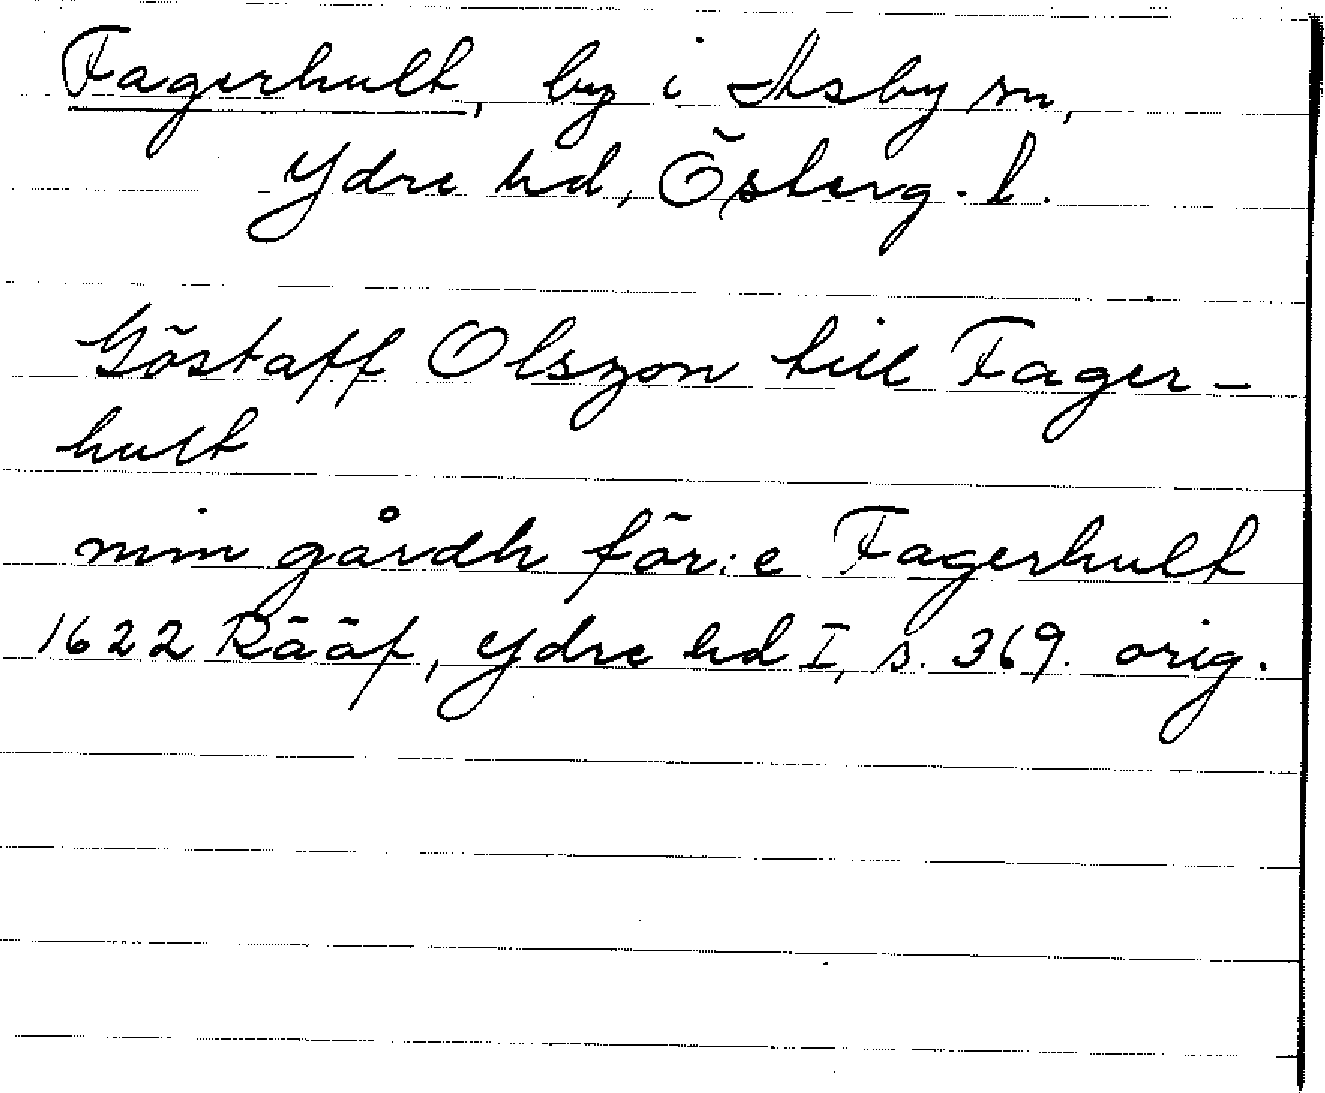 Fagerhult, by i Asby sn,
Ydre hd, Österg. l.
Göstaff Olszon till Fager-
hult
min gårdh för:e Fagerhult
1622 Rääf, Ydre hd I, s. 369. orig.